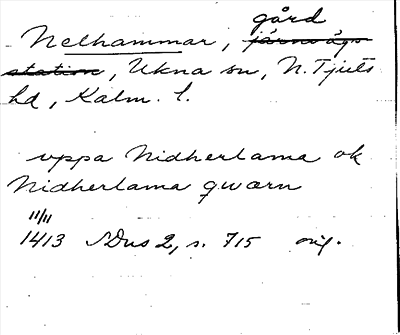 gård
Nelhammar, järnvägs-
station, Ukna sn, N. Tjusts
hd, Kalm. l.
uppa Nidherlama ok
Nidherlama qwærn
11/11
1413 SDns 2, s. 715 orig.